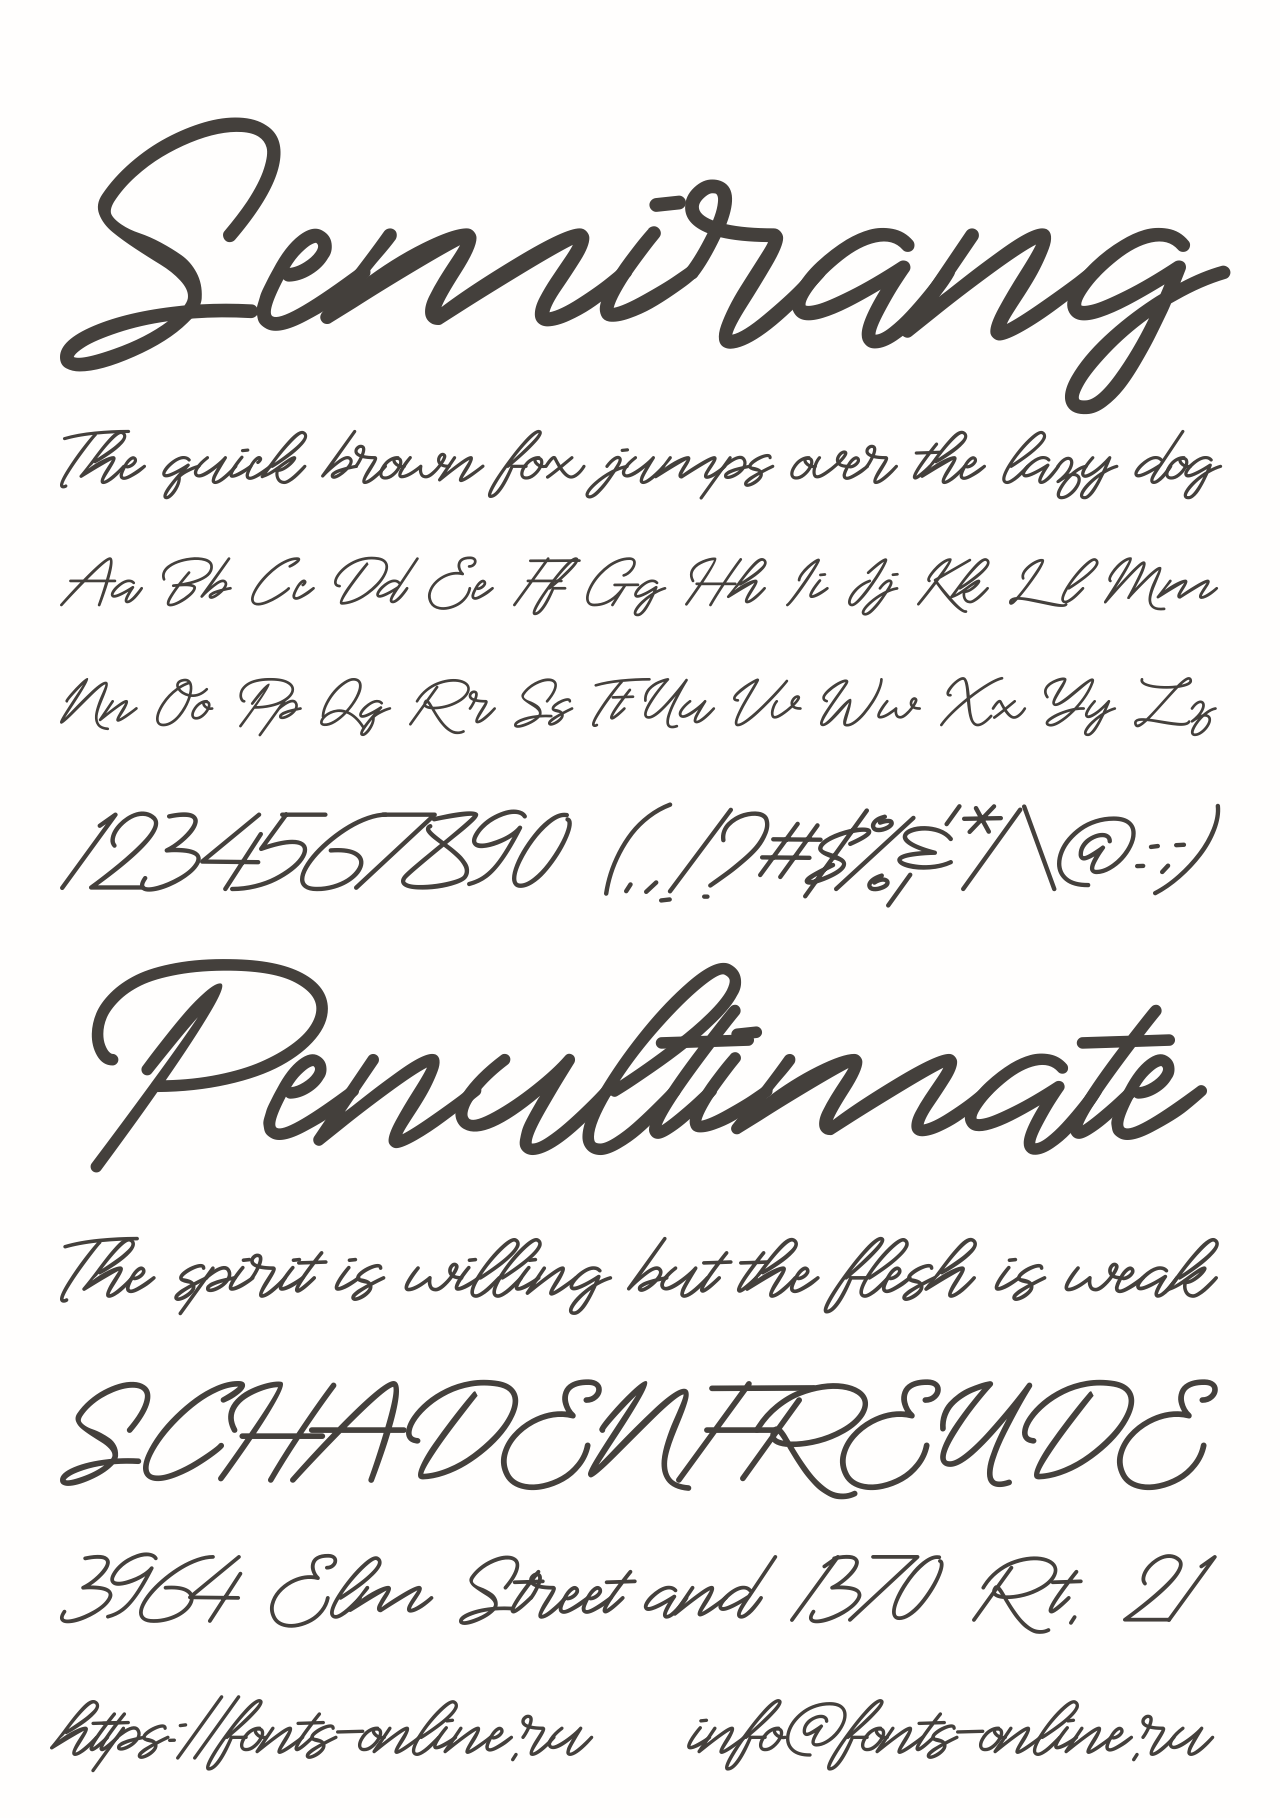 Semirang
The quick brown fox jumps over the lazy dog
Aa Bb Cc Dd Ee Ff Gg Hh Ii Jj Kk Ll Mm
Nn Oo Pp Qq Rr Ss Tt Uu Vv Ww Xx Yy Zz
1234567890 (.,/?#$%&'*/\@:;)
Penultimate
The spirit is willing but the flesh is weak
SCHADENFREUDE
3964 Elm Street and 1370 Rt. 21
https://fonts-online.ru info@fonts-online.ru